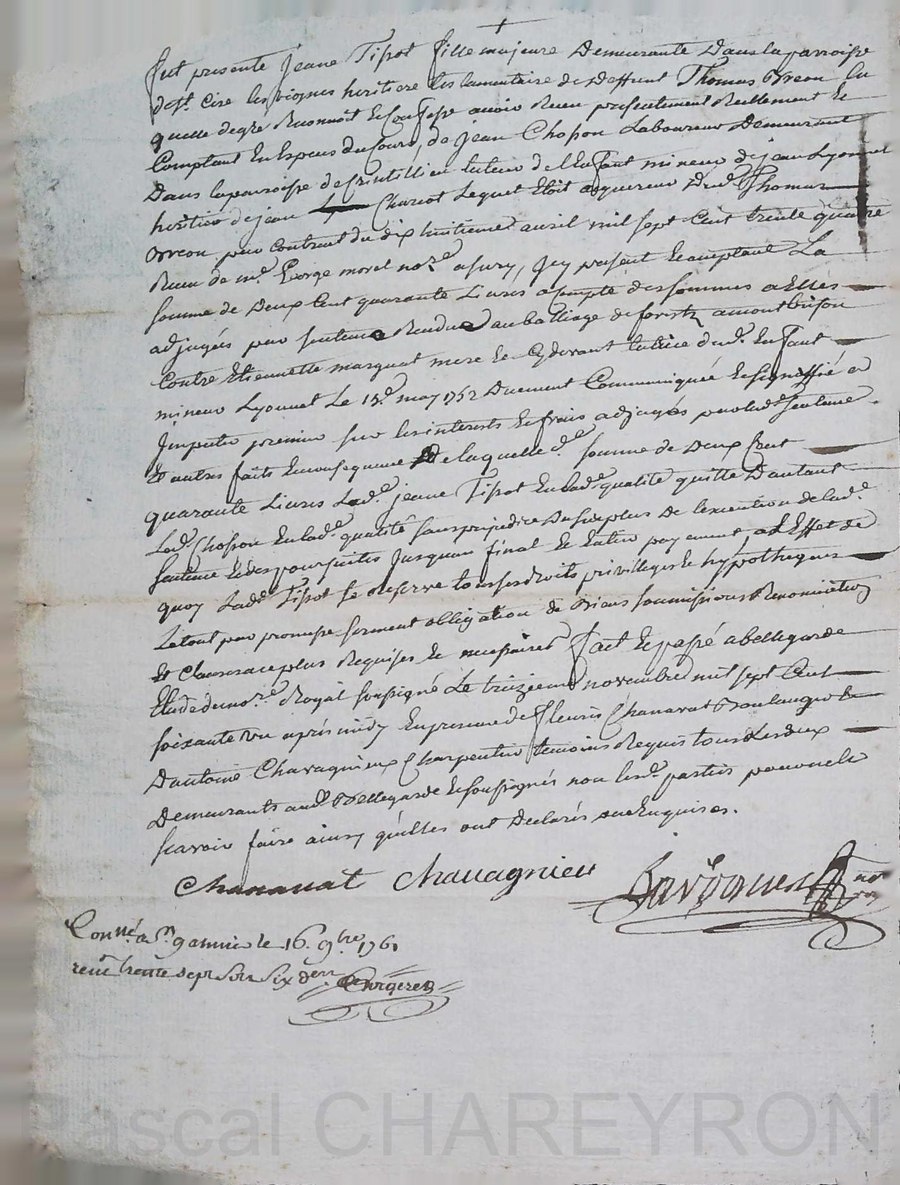 fut presente jeane Tissot fille majeure Demeurante Dans la parroisse
de st. Cire les vignes heritiere testamentaire de deffunt Thomas Oreon la
quelle de gré Reconnoit et Confesse avoir Receu presentement Reellement et
Comptant En Especes du Cours, de Jean Chosson Laboureur Demeurant
Dans la parroisse de Crintillieu tuteur de l'Enfant mineur de jean Lyonnet
heritier de jean Charcot Lequel Etoit acquereur Dud. Thomas
Orreon par Contract du dix huitieme avril mil sept Cent trente quatre
Receu de me. George morel nore. a sury, Icy present et acceptant La
somme de Deux Cent quarante Livres a compte des sommes a Elles
adjugées par sentence Rendue au balliage de forestz a montbrison
Contre Etiennette marquet mere et Cy devant tutrice dud. Enfant
mineur Lyonnet Le 13e. may 1752 Duement Communiquée et signiffié a
Imputer premier sur les interests et frais adjugés par lad. sentence
Et autres faits En consequence de laquelle de. somme de Deux Cent
quarante Livres Lade. jeane Tissot En lade. qualité quitte D'autant
Led. Chosson En lade. qualité sans prejudice Du surplus De l'execution de lade.
sentence et des poursuites Jusquau final Et Entier payement, a L'Effet de
quoy Lade. Tissot se Reserve tous ses droits privilleges et hypotheques
Le tout par promesse serment obligation de Biens soumissions Renonciations
Et Clauses a ce plus Requises Et necessaires fait Et passé a bellegarde
Etude du nore. Royal soussigné Le treizieme novembre mil sept Cent
soixante Un après midy En presence de fleuris Chanavat Boulanger Et
D'antoine Chavagnieux Charpentier temoins Requis tous Les deux
Demeurants aud. Bellegarde Et soussignés non lesd. parties pour ne le
scavoir faire ainsy qu'elles ont Declarés de ce Enquises.
Chanavat Chavagnieu
Conné. a St galmier le 16. 9bre 1761
receu trente sept sols six den.
Pascal CHAREYRON